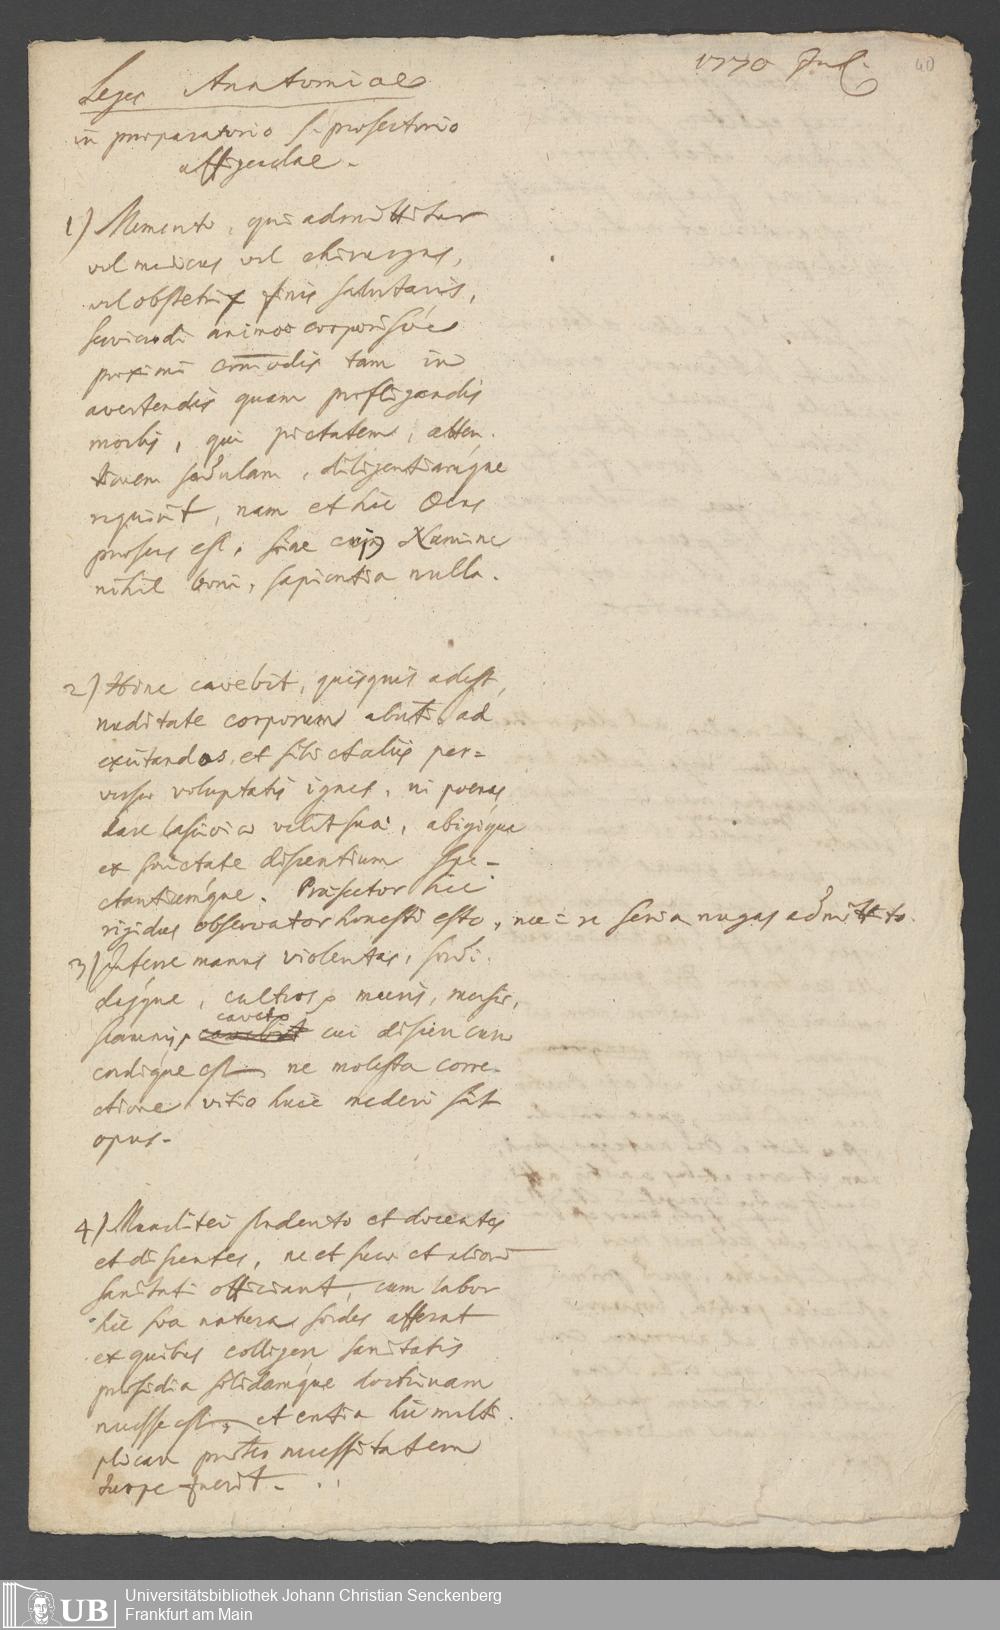 1770 Jul.
40
Leges Anatomicae
in praeparatorio s. prosectorio
affigendae.
1) Memento, qui admittitur
vel medicus vel chirurgus,
vel obstetrix finis salutaris,
serviendi animae corporisve
proximi com̄odis tam in
avertendis quam profligandis
morbis, qui pietatem, atten-
tionem sedulam, diligentiamque
requirit, nam et hic Deus
praesens est, sine cujus Numine
nihil boni, sapientia nulla.
2) Hinc cavebit, quisquis adest,
nuditate corporum abuti ad
excitandos et sibi et aliis per=
versae voluptatis ignes, ni poenas
dare lasciviae velit suae, abigique
ex societate discentium spe-
ctantiumque. Prosector hic
rigidus observator honesti esto, nec in re seria nugas admittito.
3) Inferre manus violentas, sordi-
dasque, cultros, mensis,
scamnis, caveto cui disciplinae
cordique est ne molesta corre-
ctione vitio huic mederi sit
opus.
4) Munditiei studento et docentes
et discentes, ne et suae et aliorum
sanitati officiant, cum labor
hic sua natura sordes afferat
ex quibus colligere sanitatis
praesidia solidamque doctrinam
necesse est, et entia hic multi-
plicare praeter necessitatem
turpe fuerit.
UB
Universitätsbibliothek Johann Christian Senckenberg
Frankfurt am Main